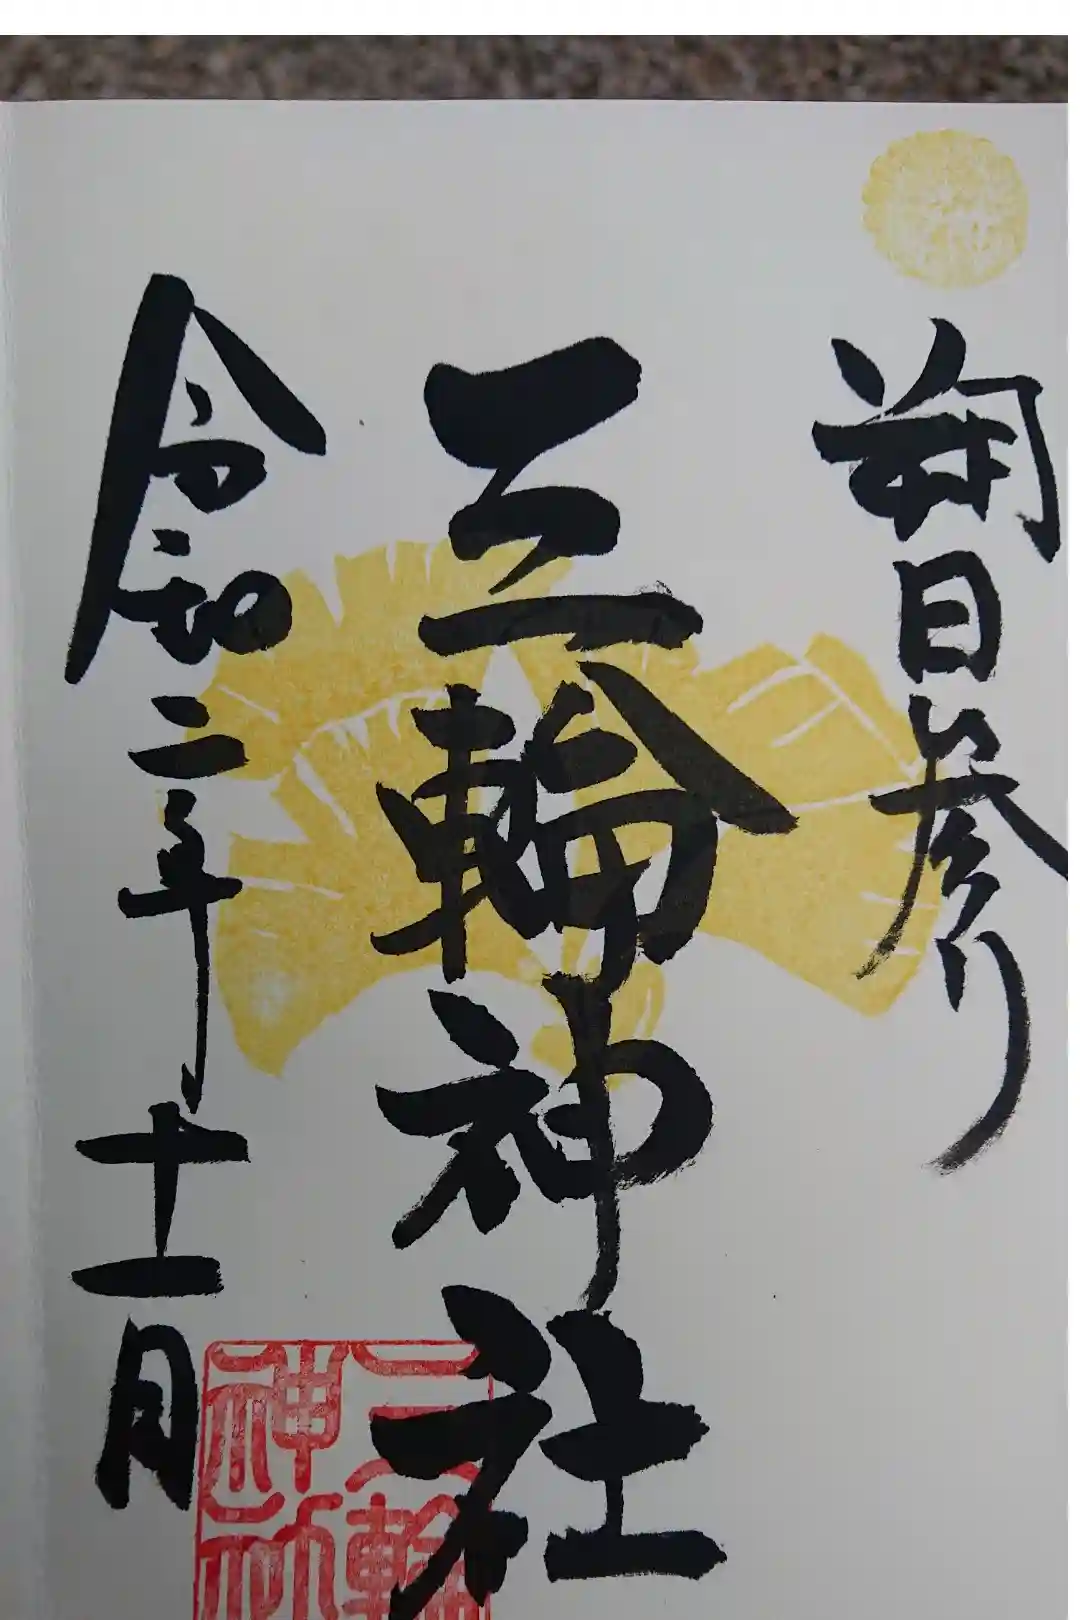 朔日参り
三輪神社
令和二年十一月
三輪
神社